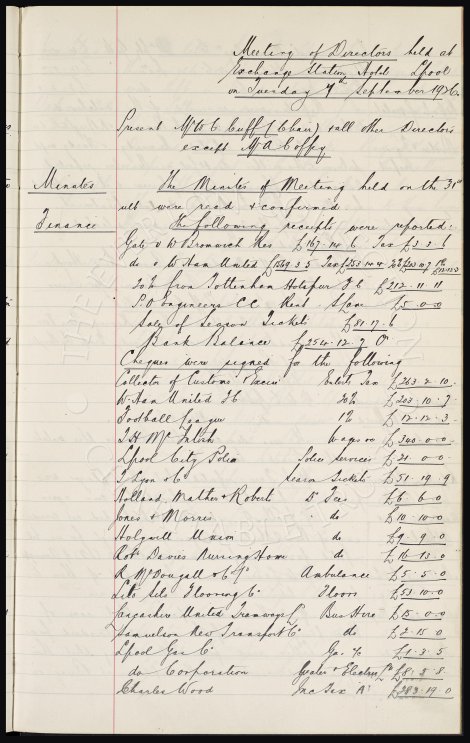 Meeting of Directors held at
Exchange Station Hotel Lpool
on Tuesday 7th September 1926.
Present Mr W C Cuff (Chair) & all other Directors
except Mr A Coffey
Minutes The Minutes of Meeting held on the 31st
ult were read & confirmed
Finance The following receipts were reported:
Gate v W Bromwich Res £167.14.6 Tax £3.3.6
do v W Ham United £1569.3.5 Tax £253.14.4 20% £203.10.7 1% £12.12.3
20% from Tottenham Hotspur FC £212.11.11
P.O Engineers CC Rent £5-0-0
Sale of Season Tickets £81.17.6
Bank Balance £254.12.7 Or
Cheques were signed for the following
Collector of Customs & Excise Enterts Tax £263.2.10
W Ham United FC 20% £203.10.7
Football League 1% £12.12.3
T.H. McIntosh Wages &c £340-0-0
Lpool City Police Police Services £21-0-0
Lyon & Co Season Tickets £51.19.9
Holland, Mather & Roberts Dr Fees £6.6.0
Jones & Morris do £10-10-0
Union do £9.9.0
Robt Davies Nursing Home do £16.13.0
R McDougall & Co Ambulance £5.5.0
Flooring Co Floors £53.10.0
Lancashire United Tramways Bus Hire £15.0.0
Samuelson New Transport Co do £2.15.0
Lpool Gas Co Gas &c £1.3.5
do Corporation Water & Electric £8.3.8
Charles Wood Inc Tax A £283.19.0